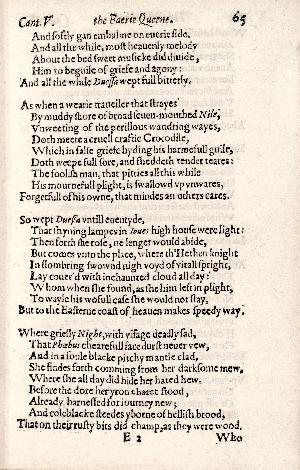 Cant. V. the Faerie Queene. 65
And softly gan embalme on euerie side,
And all the while, most heauenly melody
About the bed sweet musicke did diuide,
Him to beguile of griefe and agony:
And all the while Duessa wept full bitterly.
As when a wearie traueiler that strayes
By muddy shore of broad seuen-mouthed Nile,
Vnweeting of the perillous wandring wayes,
Doth meete a cruell craftie Crocodile,
Which in false griefe hyding his harmefull guile,
Doth weepe full sore, and sheddeth tender teares:
The foolish man, that pitties all this while
His mournefull plight, is swallowd vp vnwares,
Forgetfull of his owne, that mindes an others cares.
So wept Duessa vntill euentyde,
That shyning lampes in Ioues high house were light:
Then forth she rose, ne lenger would abide,
But comes vnto the place, where th'Hethen knight
In slombring swownd nigh voyd of vitall spright,
Lay couer'd with inchaunted cloud all day:
Whom when she found, as she him left in plight,
To wayle his wofull case she would not stay,
But to the Easterne coast of heauen makes speedy way.
Where griesly Night, with visage deadly sad,
That Phœbus chearefull face durst neuer vew,
And in a foule blacke pitchy mantle clad,
She findes forth comming from her darksome mew,
Where she all day did hide her hated hew.
Before the dore her yron charet stood,
Already harnessed for iourney new;
And coleblacke steedes yborne of hellish brood,
That on their rusty bits did champ, as they were wood.
E 2 Who